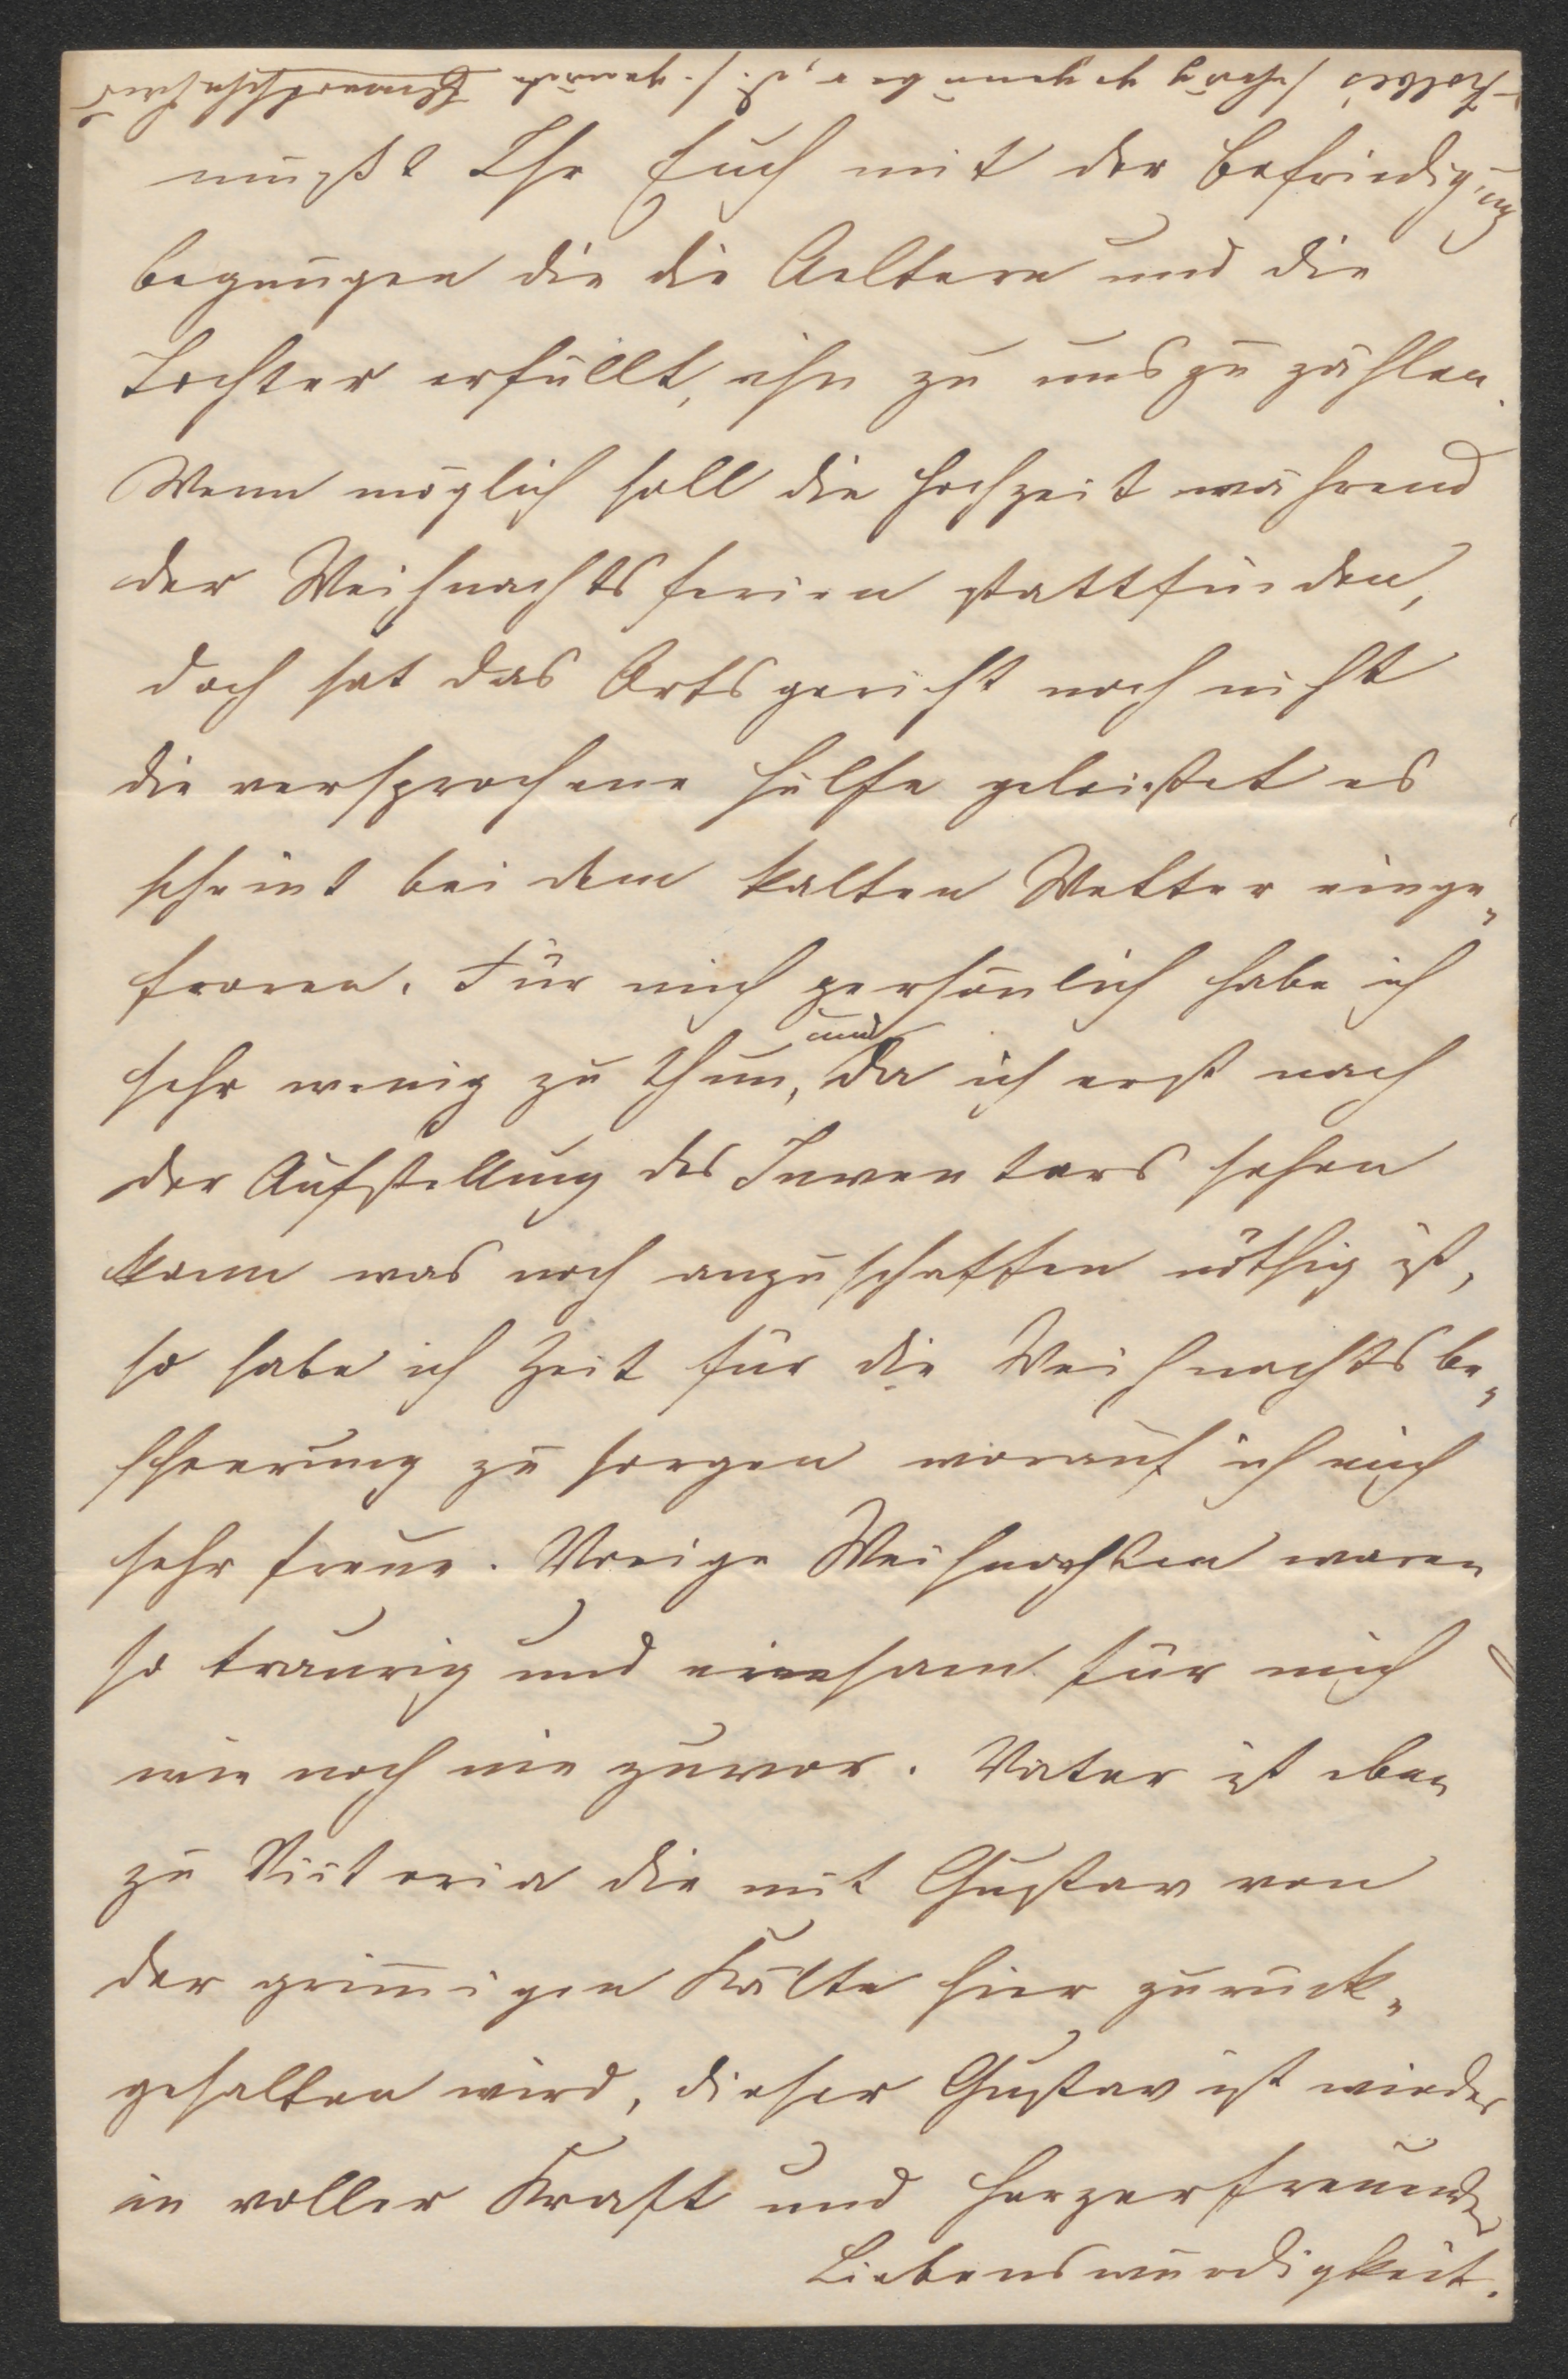 müßt Ihr Euch mit der Befriedigung
begnügen die die Aeltern und die
Tochter erfüllt, ihn zu uns zu zählen.
Wenn möglich soll die Hochzeit während
der Weihnachtsferien stattfinden,
doch hat das Ortsgericht noch nicht
die versprochene Hülfe geleistet es
scheint bei dem kalten Wetter einge„
froren. Für mich persönlich habe ich
sehr wenig zu thun, und da ich erst nach
der Aufstellung des Inventars sehen
kann was noch anzuschaffen nöthig ist,
so habe ich Zeit für die Weihnachtsbe„
scheerung zu sorgen worauf ich mich
sehr freue. Vorige Weihnachten waren
so traurig und einsam für mich
wie noch nie zuvor. Vater ist eben
zu Victoria die mit Gustav von
der grimmigen Kälte hier zurück„
gehalten wird, dieser Gustav ist wieder
in voller Kraft und herzerfreuender
Liebenswürdigkeit.